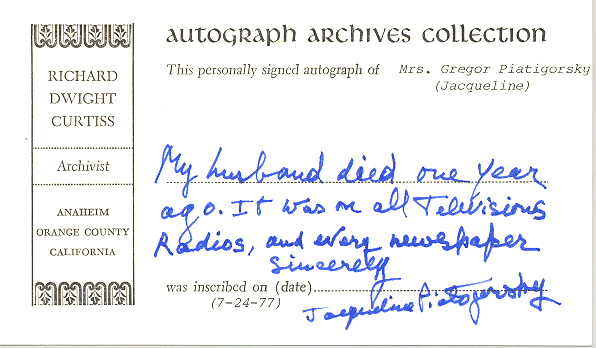 AUTOGRAPH ARCHIVES COLLECTION
This personally signed autograph of Mrs. Gregor Piatigorsky
(Jacqueline)
RICHARD
DWIGHT
CURTISS
Archivist
ANAHEIM
ORANGE COUNTY
CALIFORNIA
My husband died one year
ago. It was on all Televisions
Radios, and every newspaper
Sincerely
was inscribed on (date)
(7-24-77)
Jacqueline Piatigorsky